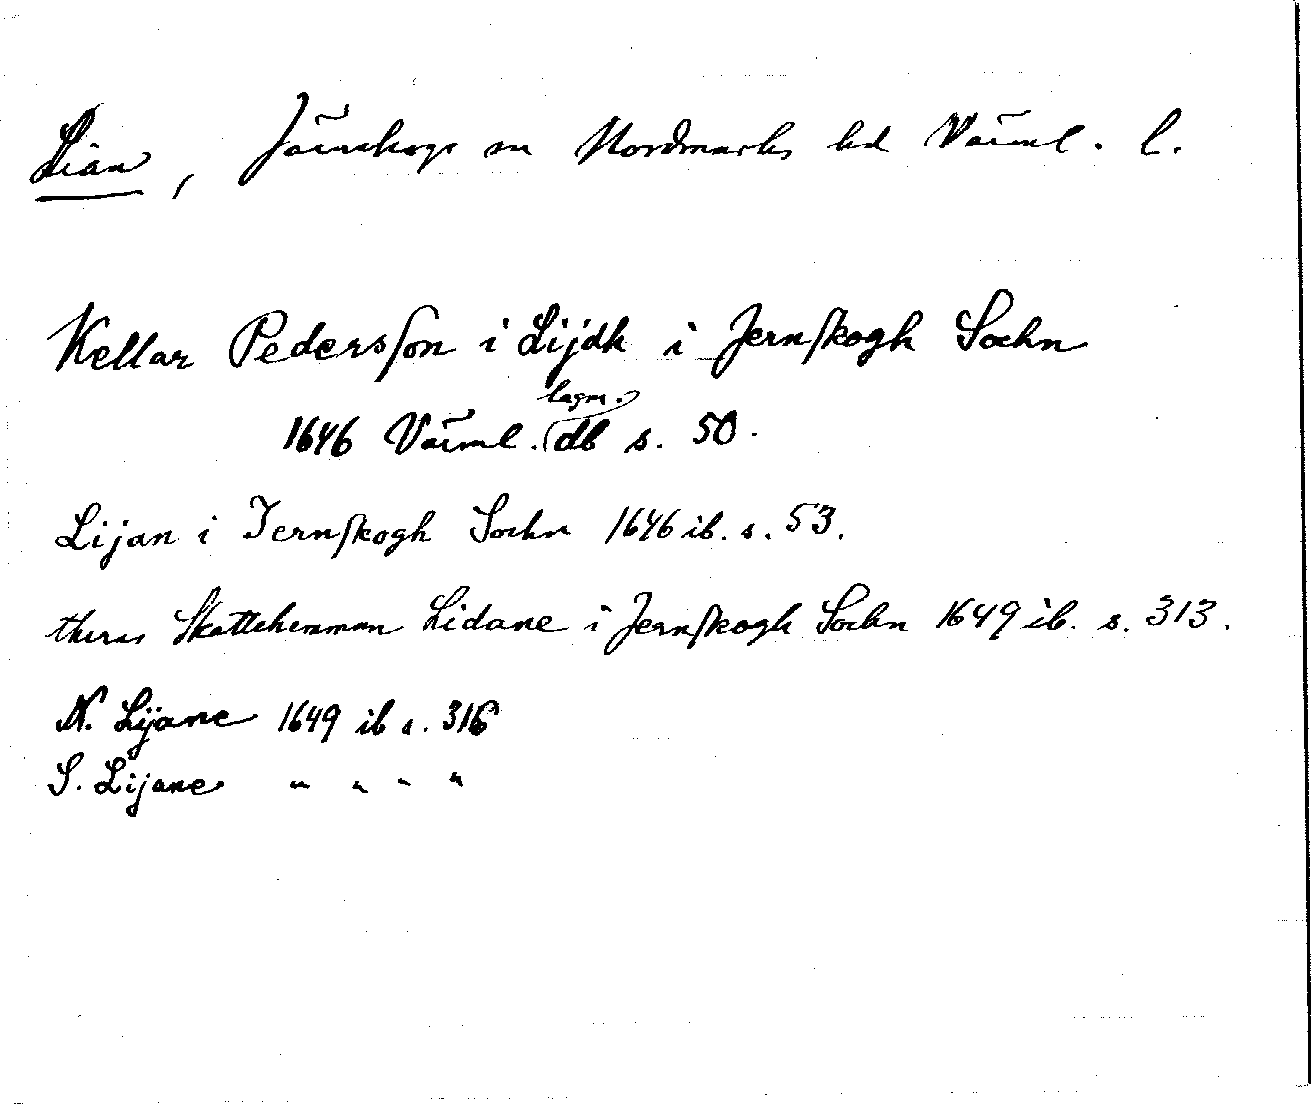 Liân, Järnskogs sn Nordmarks hd Värml. l.
Kellar Pedersſon i Lijdh i Jernſkogh Sochn
1646 Värml. lagm. db s. 50.
Lijan i Jernſkogh Sochn 1646 ib. s. 53.
theras Skattehemman Lidane i Jernſkogh Sochn 1649 ib. s. 313.
N. Lijane 1649 ib s. 316
S. Lijane " " " "